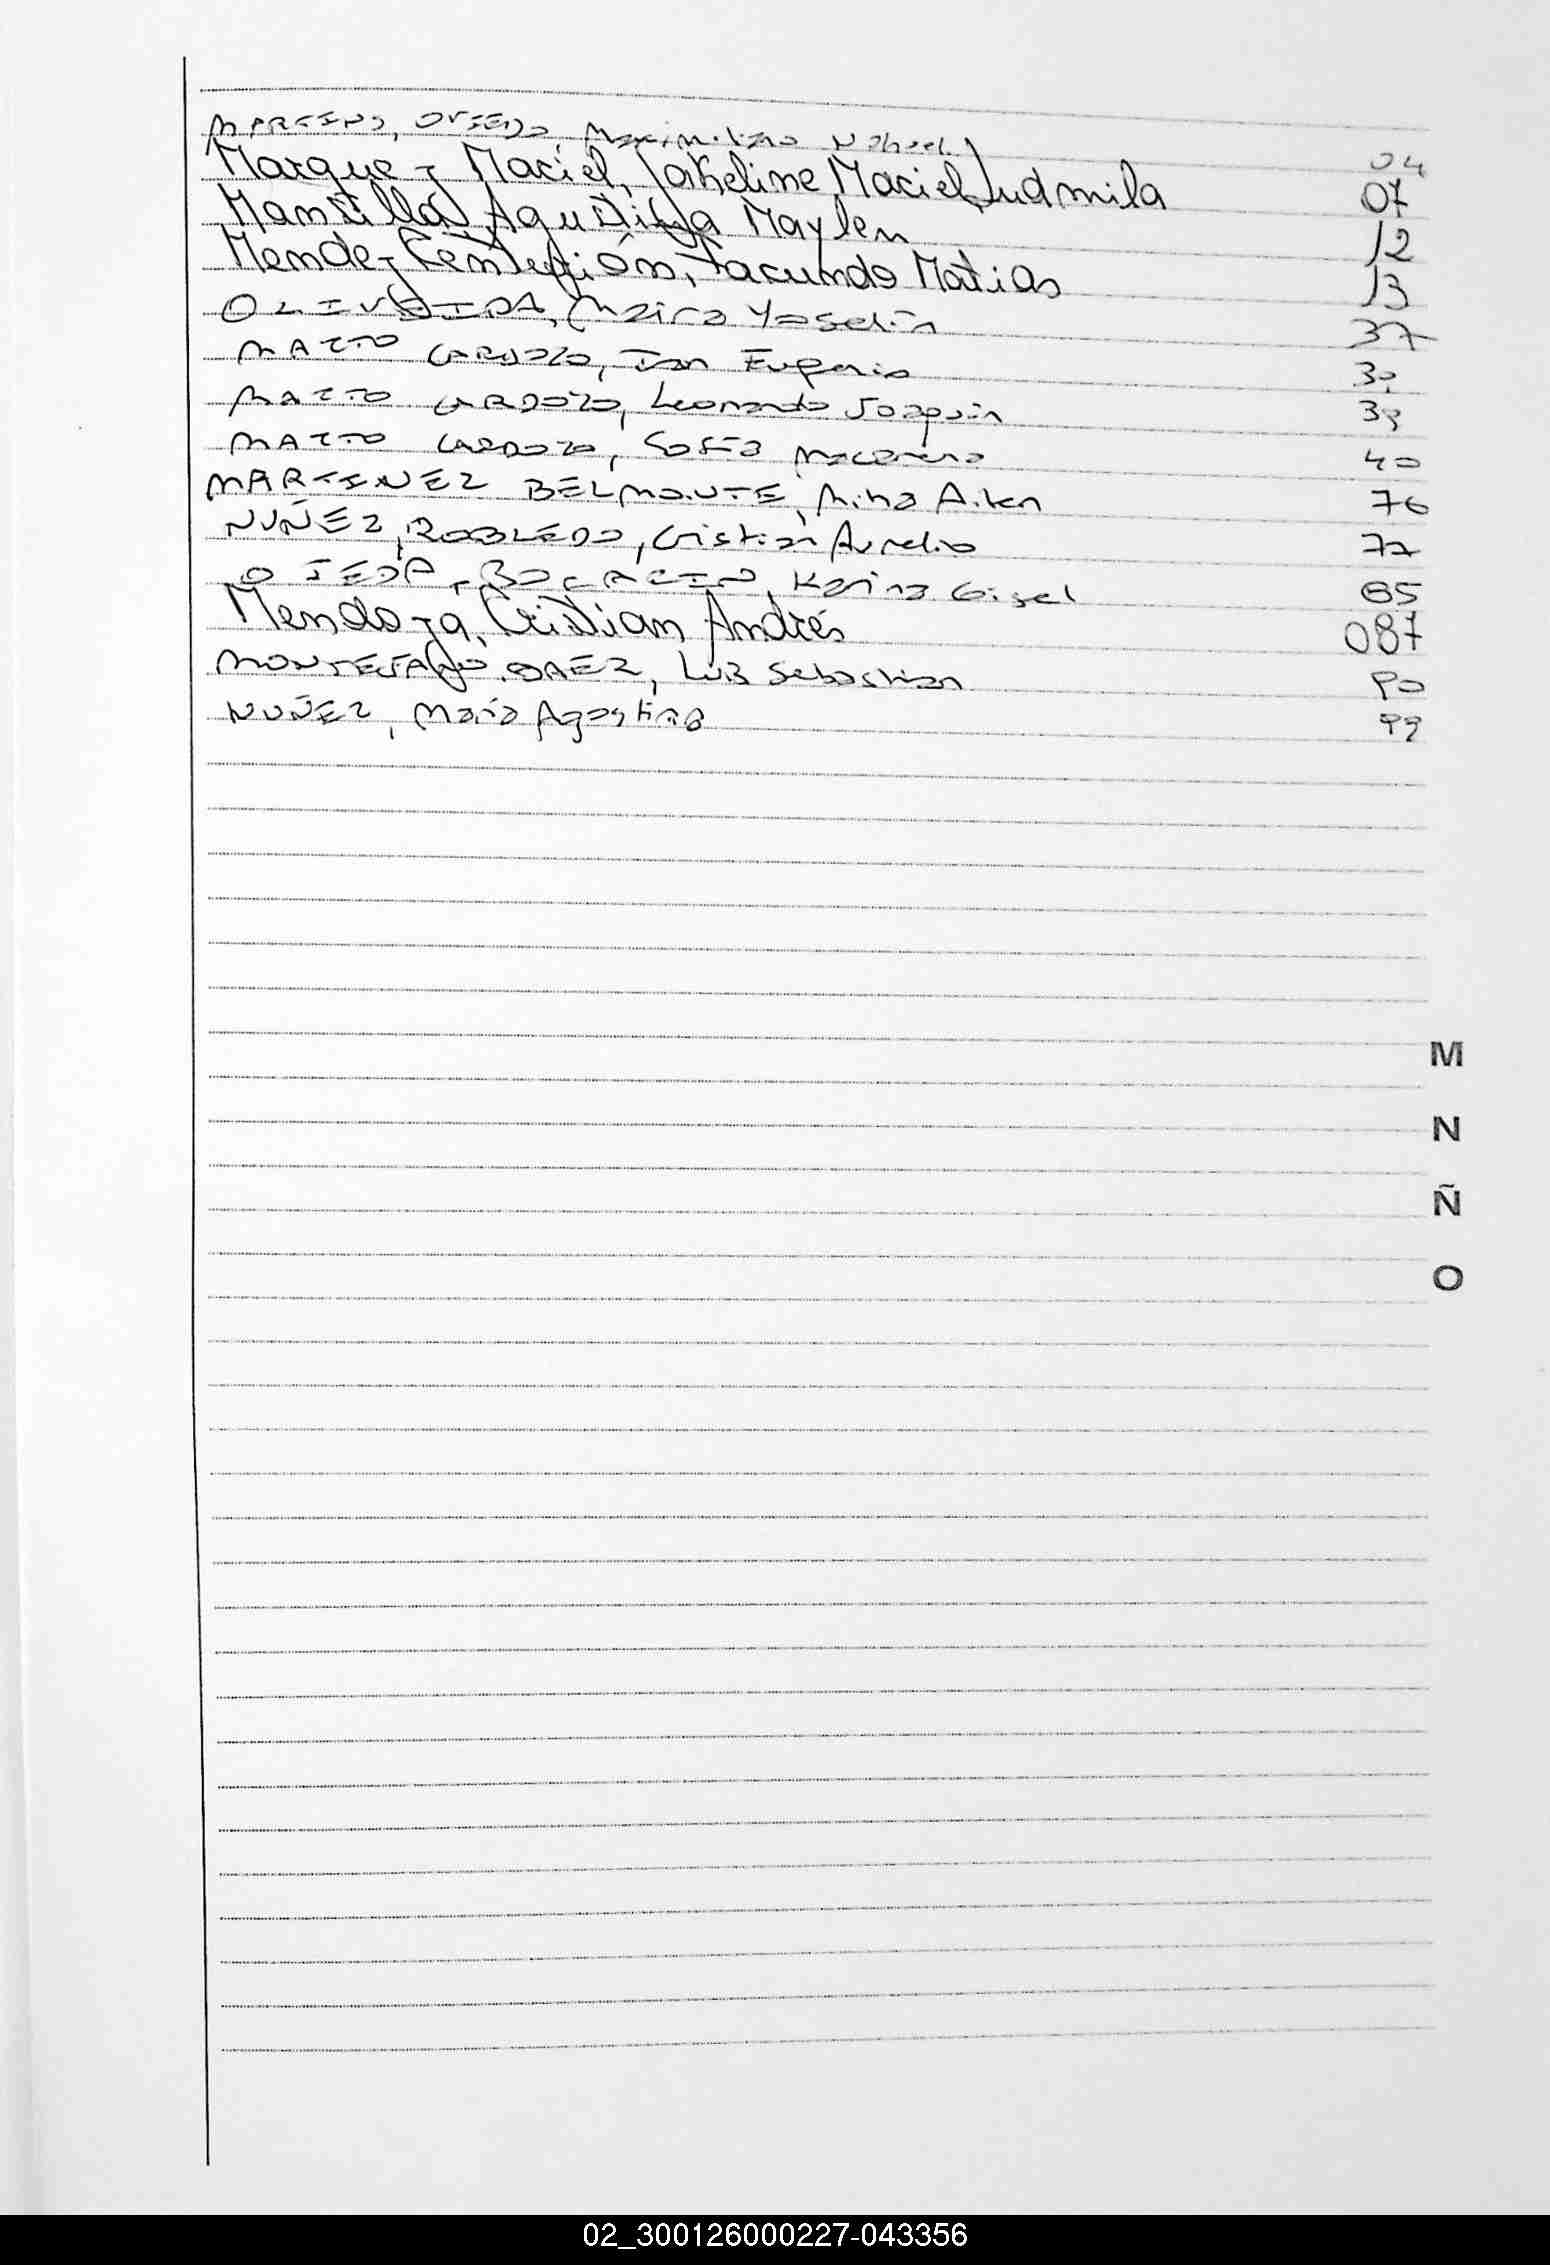 MARTINO, OVIEDO, Maximiliano Nahuel 04
Marquez Maciel, Jakeline Maciel Ludmila 07
Mansilla, Agustina Maylen 12
Mendez Centurión, Facundo Matias 13
OLIVEIRA, Maira Yoselin 37
MATTO CARDOZO, Ian Eugenio
MATTO CARDOZO, Leonardo Joaquin 39
MATTO CARDOZO, Sofia Macarena 40
MARTINEZ BELMONTE, Mina Aiken 76
NUÑEZ, ROBLEDO, Cristian Aurelio 77
OJEDA, Karina Gisel 85
Mendoza, Cristian Andrés 087
BAEZ, Luis Sebastian 90
NUÑEZ, Maria Agostina 99
M
N
Ñ
O
02_300126000227-043356